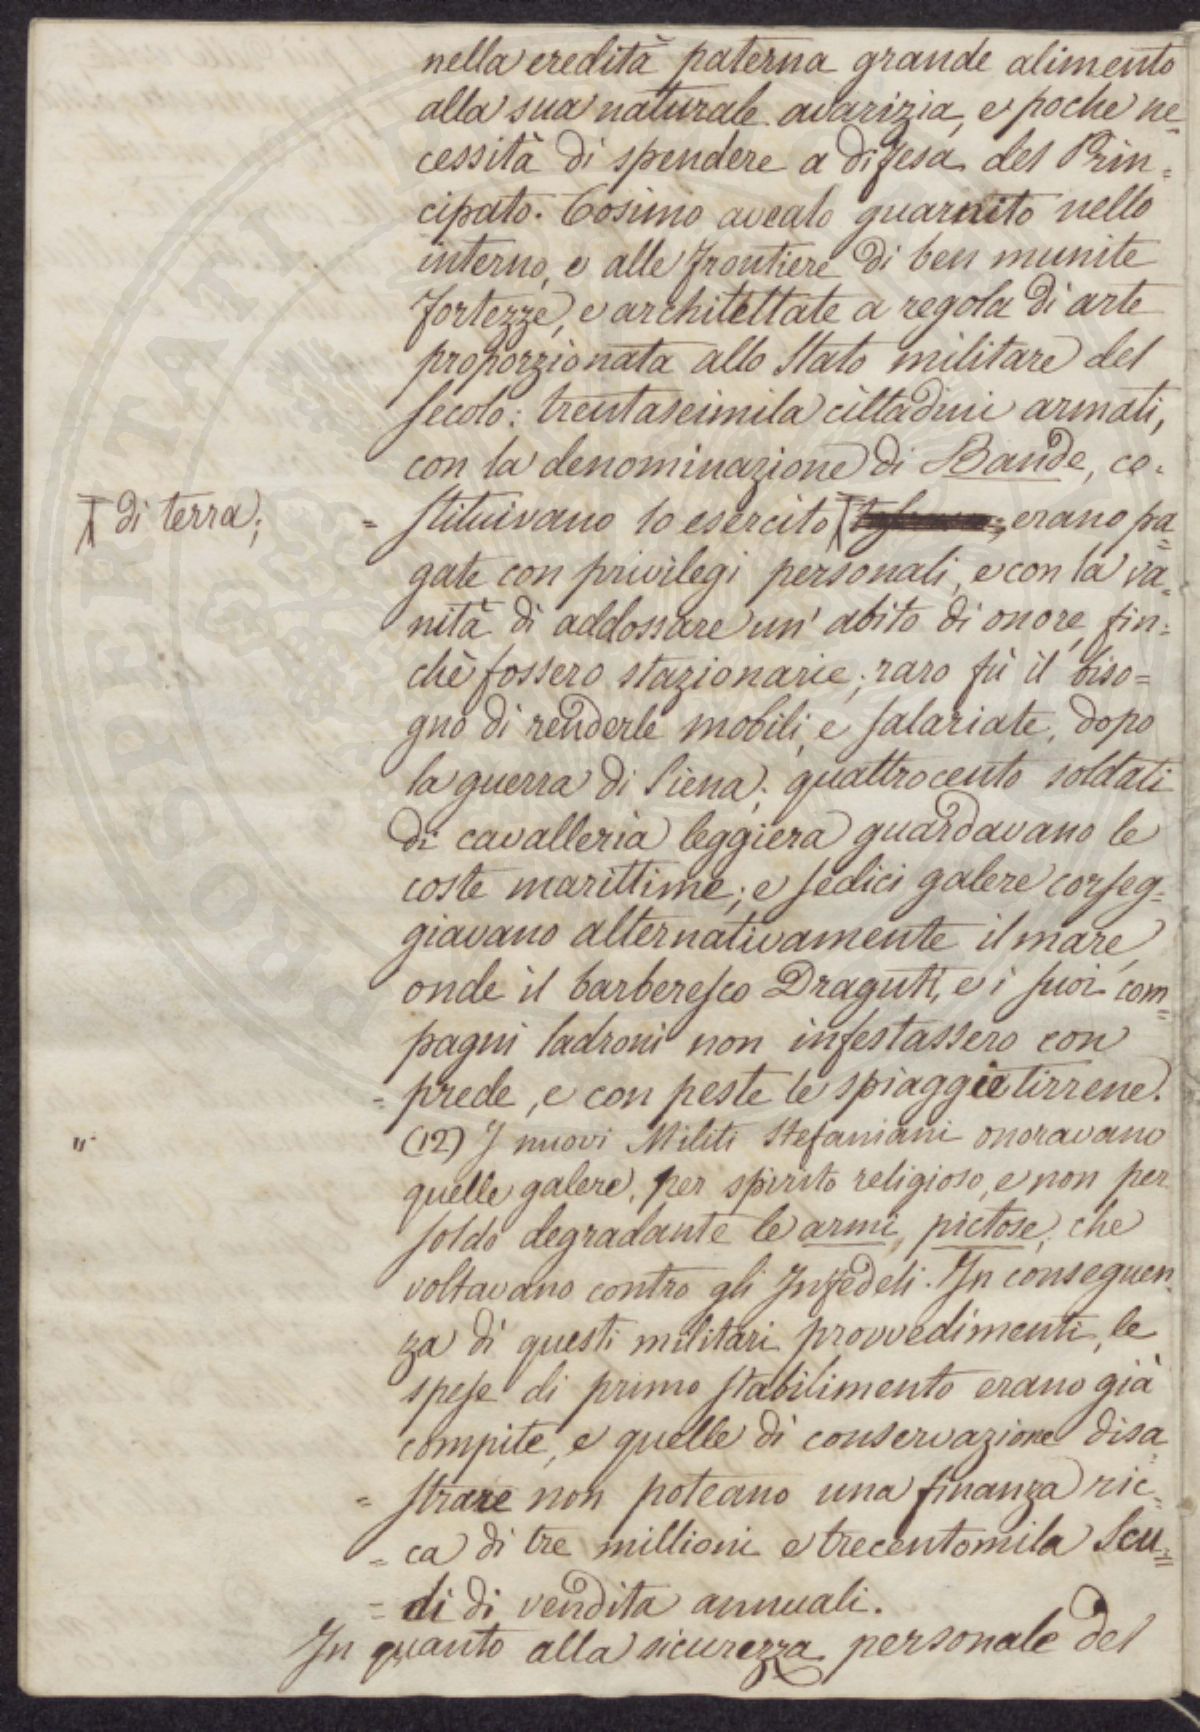 nella eredità paterna grande alimento
alla sua naturale avarizia, e poche ne-
cessità di spendere a difesa del Prin-
cipato. Cosimo avealo guarnito nello
interno, e alle frontiere di ben munite
fortezze, e architettate a regola di arte
proporzionata allo Stato militare del
secolo: trentaseimila cittadini armati,
con la denominazione di Bande, co-
= stituivano lo esercito erano pa=
di terra;
gate con privilegi personali, e con la va=
nità di addossare un' abito di onore, fin=
chè fossero stazionarie; raro fù il biso=
gno di renderle mobili, e salariate, dopo
la guerra di Siena; quattrocento soldati
di cavalleria leggiera guardavano le
coste marittime; e sedici galere corseg-
giavano alternativamente il mare,
onde il barberesco Dragutt, e i suoi com=
pagni ladroni non infestassero con
= prede, e con peste le spiaggie tirrene.
" (12) I nuovi Militi Stefaniani onoravano
quelle galere, per spirito religioso, e non per
soldo degradante le armi, pietose, che
voltavano contro gli Infedeli. In conseguen
za di questi militari provvedimenti, le
spese di primo stabilimento erano già
compite, e quelle di conservazione disa
= strare non poteano una finanza ric=
= ca di tre millioni e trecentomila Scu=
= di di vendita annuali.
In quanto alla sicurezza personale del